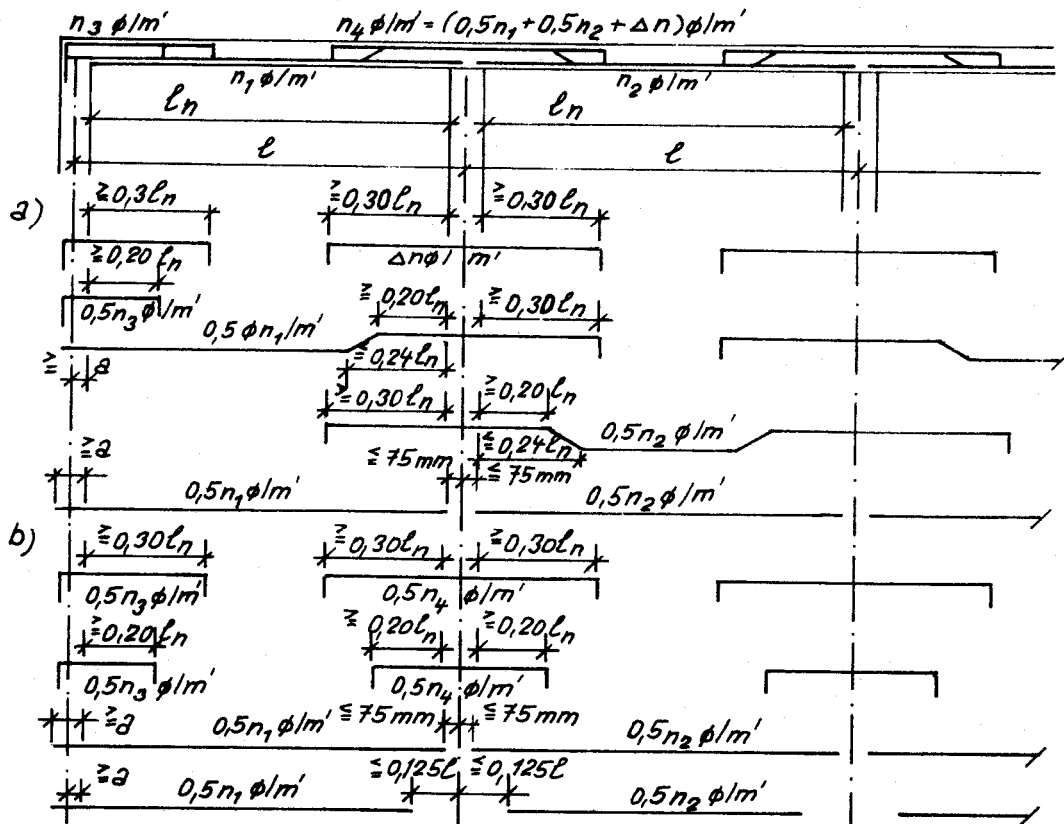 n₃ ϕ/m' n₄ ϕ/m' = (0,5n₁ + 0,5n₂ + Δn)ϕ/m'
n₁ ϕ/m' n₂ ϕ/m'
ℓn ℓn
ℓ ℓ
a) ≧0,3ℓn ≧0,30ℓn ≧0,30ℓn
Δnϕ/m'
≧0,20ℓn
0,5n₃ ϕ/m' ≧0,20ℓn ≧0,30ℓn
0,5ϕn₁/m'
≧ a ≦0,24ℓn
≧0,30ℓn ≧0,20ℓn
≦0,24ℓn 0,5n₂ ϕ/m'
≧a ≦75mm ≦75mm
0,5n₁ ϕ/m' 0,5n₂ ϕ/m'
b)
≧0,30ℓn ≧0,30ℓn ≧0,30ℓn
0,5n₃ ϕ/m' 0,5n₄ ϕ/m'
≧0,20ℓn ≧0,20ℓn ≧0,20ℓn
0,5n₃ ϕ/m' 0,5n₄ ϕ/m'
≧a 0,5n₁ ϕ/m' ≦75mm ≦75mm 0,5n₂ ϕ/m'
≧a 0,5n₁ ϕ/m' ≦0,125ℓ ≦0,125ℓ 0,5n₂ ϕ/m'